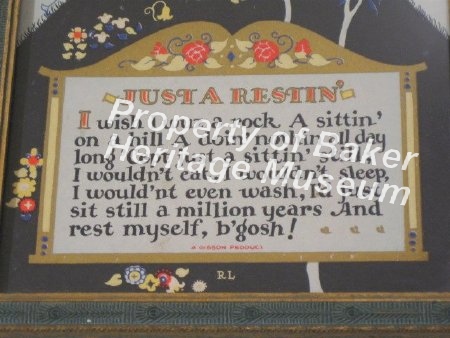 JUST A RESTIN'
I wish I wuz a rock A sittin'
on a hill A doin' nothin' all day
long But just a sittin' still
I wouldn't eat, I wouldn't sleep,
I would'nt even wash, I'd just
sit still a million years And
rest myself, b'gosh!
A GIBSON PRODUCT
RL
Property of Baker
Heritage Museum